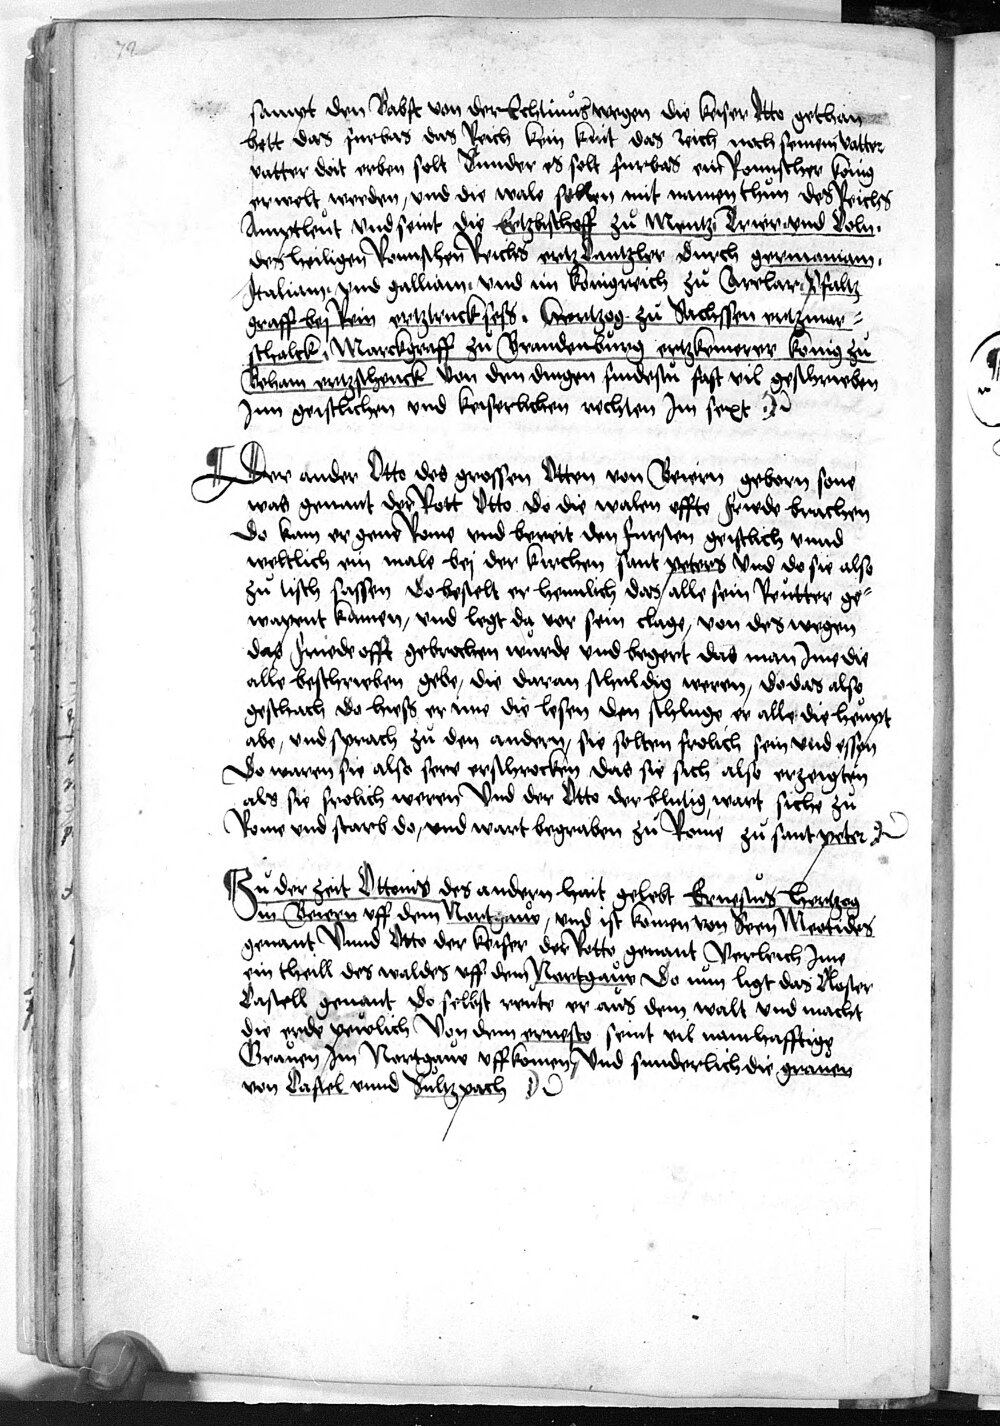 72
sampt den Babst von der Echtnus wegen die keiser Otto gethan
hett das furbas das Reich kein kint das reich noch seinem vatter
vatter doit erben solt Sunder es solt furbas ein Romischer konig
erwelt werden, und die wale sollen mit namen thun des Reichs
Amptleut Und seint die Ertzbischoff zu Mentz Trier und Coln.
des heiligen Romischen Reichs ertz Cantzler durch germaniam.
Italiam. und galliam. und im konigreich zu Arelat. Pfaltz
graff bei Rein ertztruckseß. Hertzog zu Sachssen ertzmar=
schalck. Marckgraff zu Brandenburg ertzkemerer konig zu
Beham ertzschenck Von den dingen findestu fast vil geschrieben
Inn geistlichen und keiserlichen rechten Im sext
Der ander Otto des grossen Otten von Beiern geborn sone
was genant der Rott Otto do die walen offte friede brachen
Do kam er gene Rome und bereit den fursten geistlich unnd
weltlich ein male bei der kirchen sant peters Und do sie also
zu tisch sassen Do bestelt er heimlich das alle sein Reutter ge=
wapent kamen, und legt da vor sein clage, von des wegen
das friede offt gebrochen wurde und begert das man Ime die
alle beschrieben gebe, die daran schuldig weren, do das also
geschach do hiess er ime die lesen den schluge er alle die heupt
abe, und sprach zu den andern, sie solten frolich sein und essen
Do waren sie also sere erschrocken das sie sich also erzeigten
als sie frolich weren Und der Otto der blutig wart siche zu
Rome und starb do, und wart begraben zu Rome zu sant peter
Zu der zeit Ottonis des andern hait gelebt Ernestus Hertzog
in Beiern uff dem Nortgauw, und ist komen von Seen Meotides
genant Unnd Otto der keiser der Rotto genant Verleich Ime
ein theill des waldes uff dem Nortgauw Do nun ligt das Closter
Castell genant do selbst reute er aus dem walt und macht
die erde pewlich Von dem ernesto seint vil namhafftige
Grauen Im Nortgauw uffkomen, Und sunderlich die grauen
von Castel unnd Sultzpach